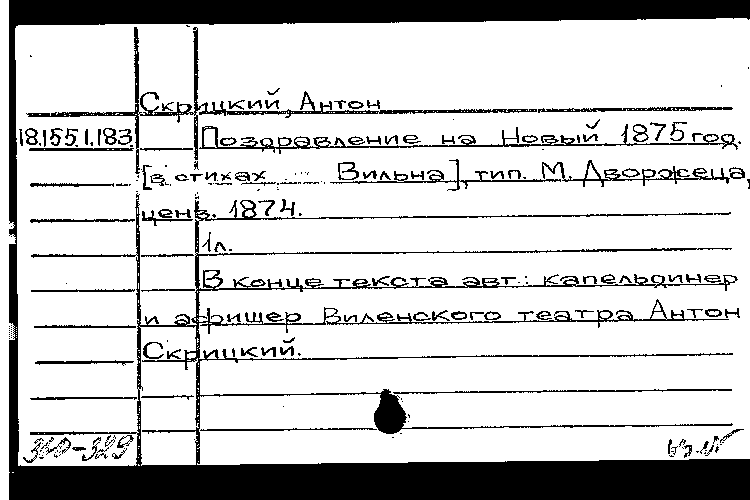 Скрицкий, Антон
18.155.1.183 Поздравление на Новый 1875 год.
[в стихах Вильна], тип. М. Дворжеца,
ценз. 1874.
1л.
В конце текста авт.: капельдинер
и афишер Виленского театра Антон
Скрицкий.
310-329